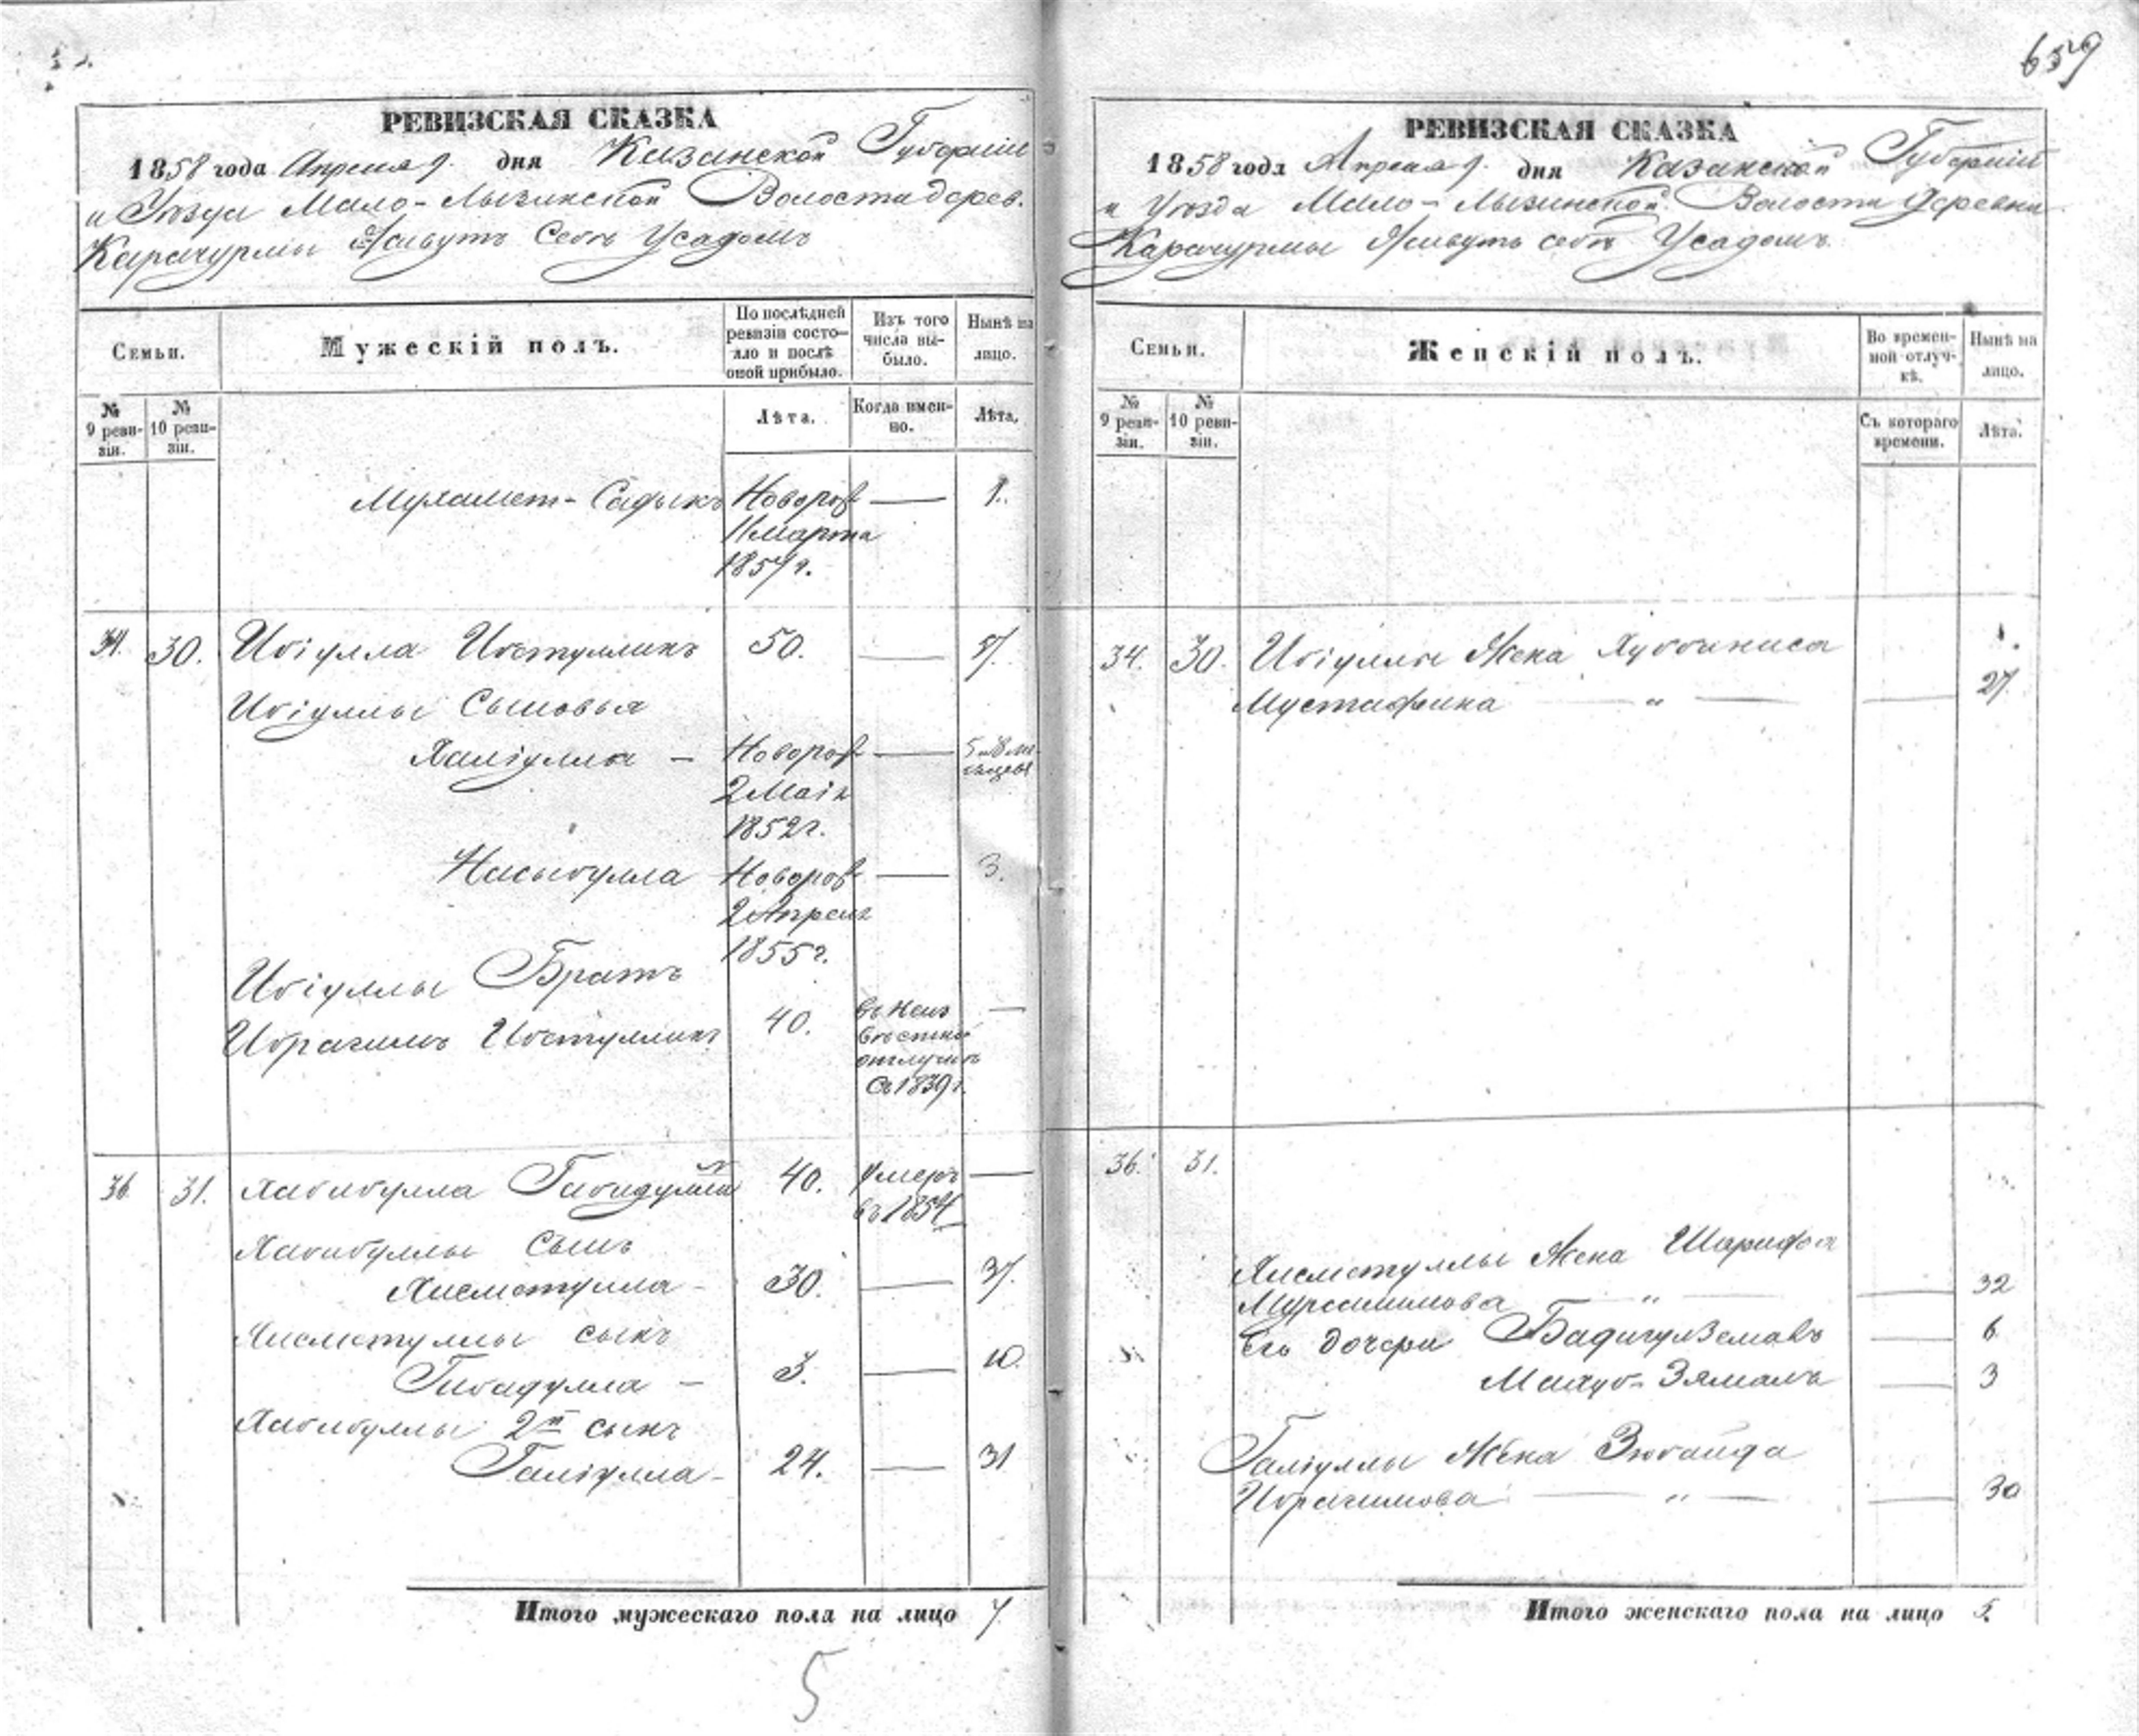 659
РЕВИЗСКАЯ СКАЗКА
1858 года Апреля 9. дня Казанской Губерніи
и Уѣзда Мало-Лызинской Волости дерев.
Карачурмы Живутъ Себѣ Усадомъ
Семьи.
Мужескій полъ.
По послѣдней
ревизіи состо-
яло и послѣ
оной прибыло.
Изъ того
числа вы-
было.
Нынѣ на
лицо.
№
9 реви-
зіи.
№
10 реви-
зіи.
Лѣта.
Когда имен-
но.
Лѣта.
Мухамет-Садыкъ Новорож — 1.
11 Марта
1857 г.
34. 30. 50. — 57.
Сыновья
Халіулла — Новорож — 5 и 8 ме-
сяцевъ
2 Маія
1852 г.
Насыбулла Новорож — 3.
2 Апреля
1855 г.
Братъ
Ибрагимъ 40. въ Неиз
вѣстной
отлучкѣ
Съ 1839 г. —
36. 31. Хабибулла Габидуллин 40. Умеръ
въ 1854 —
Хабибуллы Сынъ
Хисметулла - 30. — 37.
Хисметуллы сынъ
Гибадулла — 3. — 10.
Хабибуллы 2й сынъ
Галіулла - 24. — 31
Итого мужескаго пола на лицо 7
5
РЕВИЗСКАЯ СКАЗКА
1858 года Апреля 9. дня Казанской Губерніи
и Уѣзда Мало-Лызинской Волости Деревни
Карачурмы Живутъ себѣ Усадомъ.
Семьи.
Женскій полъ.
Во времен-
ной отлуч-
кѣ.
Нынѣ на
лицо.
№
9 реви-
зіи.
№
10 реви-
зіи.
Съ котораго
времени.
Лѣта.
34. 30. Жена
Мустафина — " — — 27.
36. 31.
Хисметуллы Жена Шарифа
— " — — 32
Его дочери — 6
Махуб-Зямалъ — 3
Галіуллы Жена Зюбайда
Ибрагимова — " — — 30
Итого женскаго пола на лицо 5.